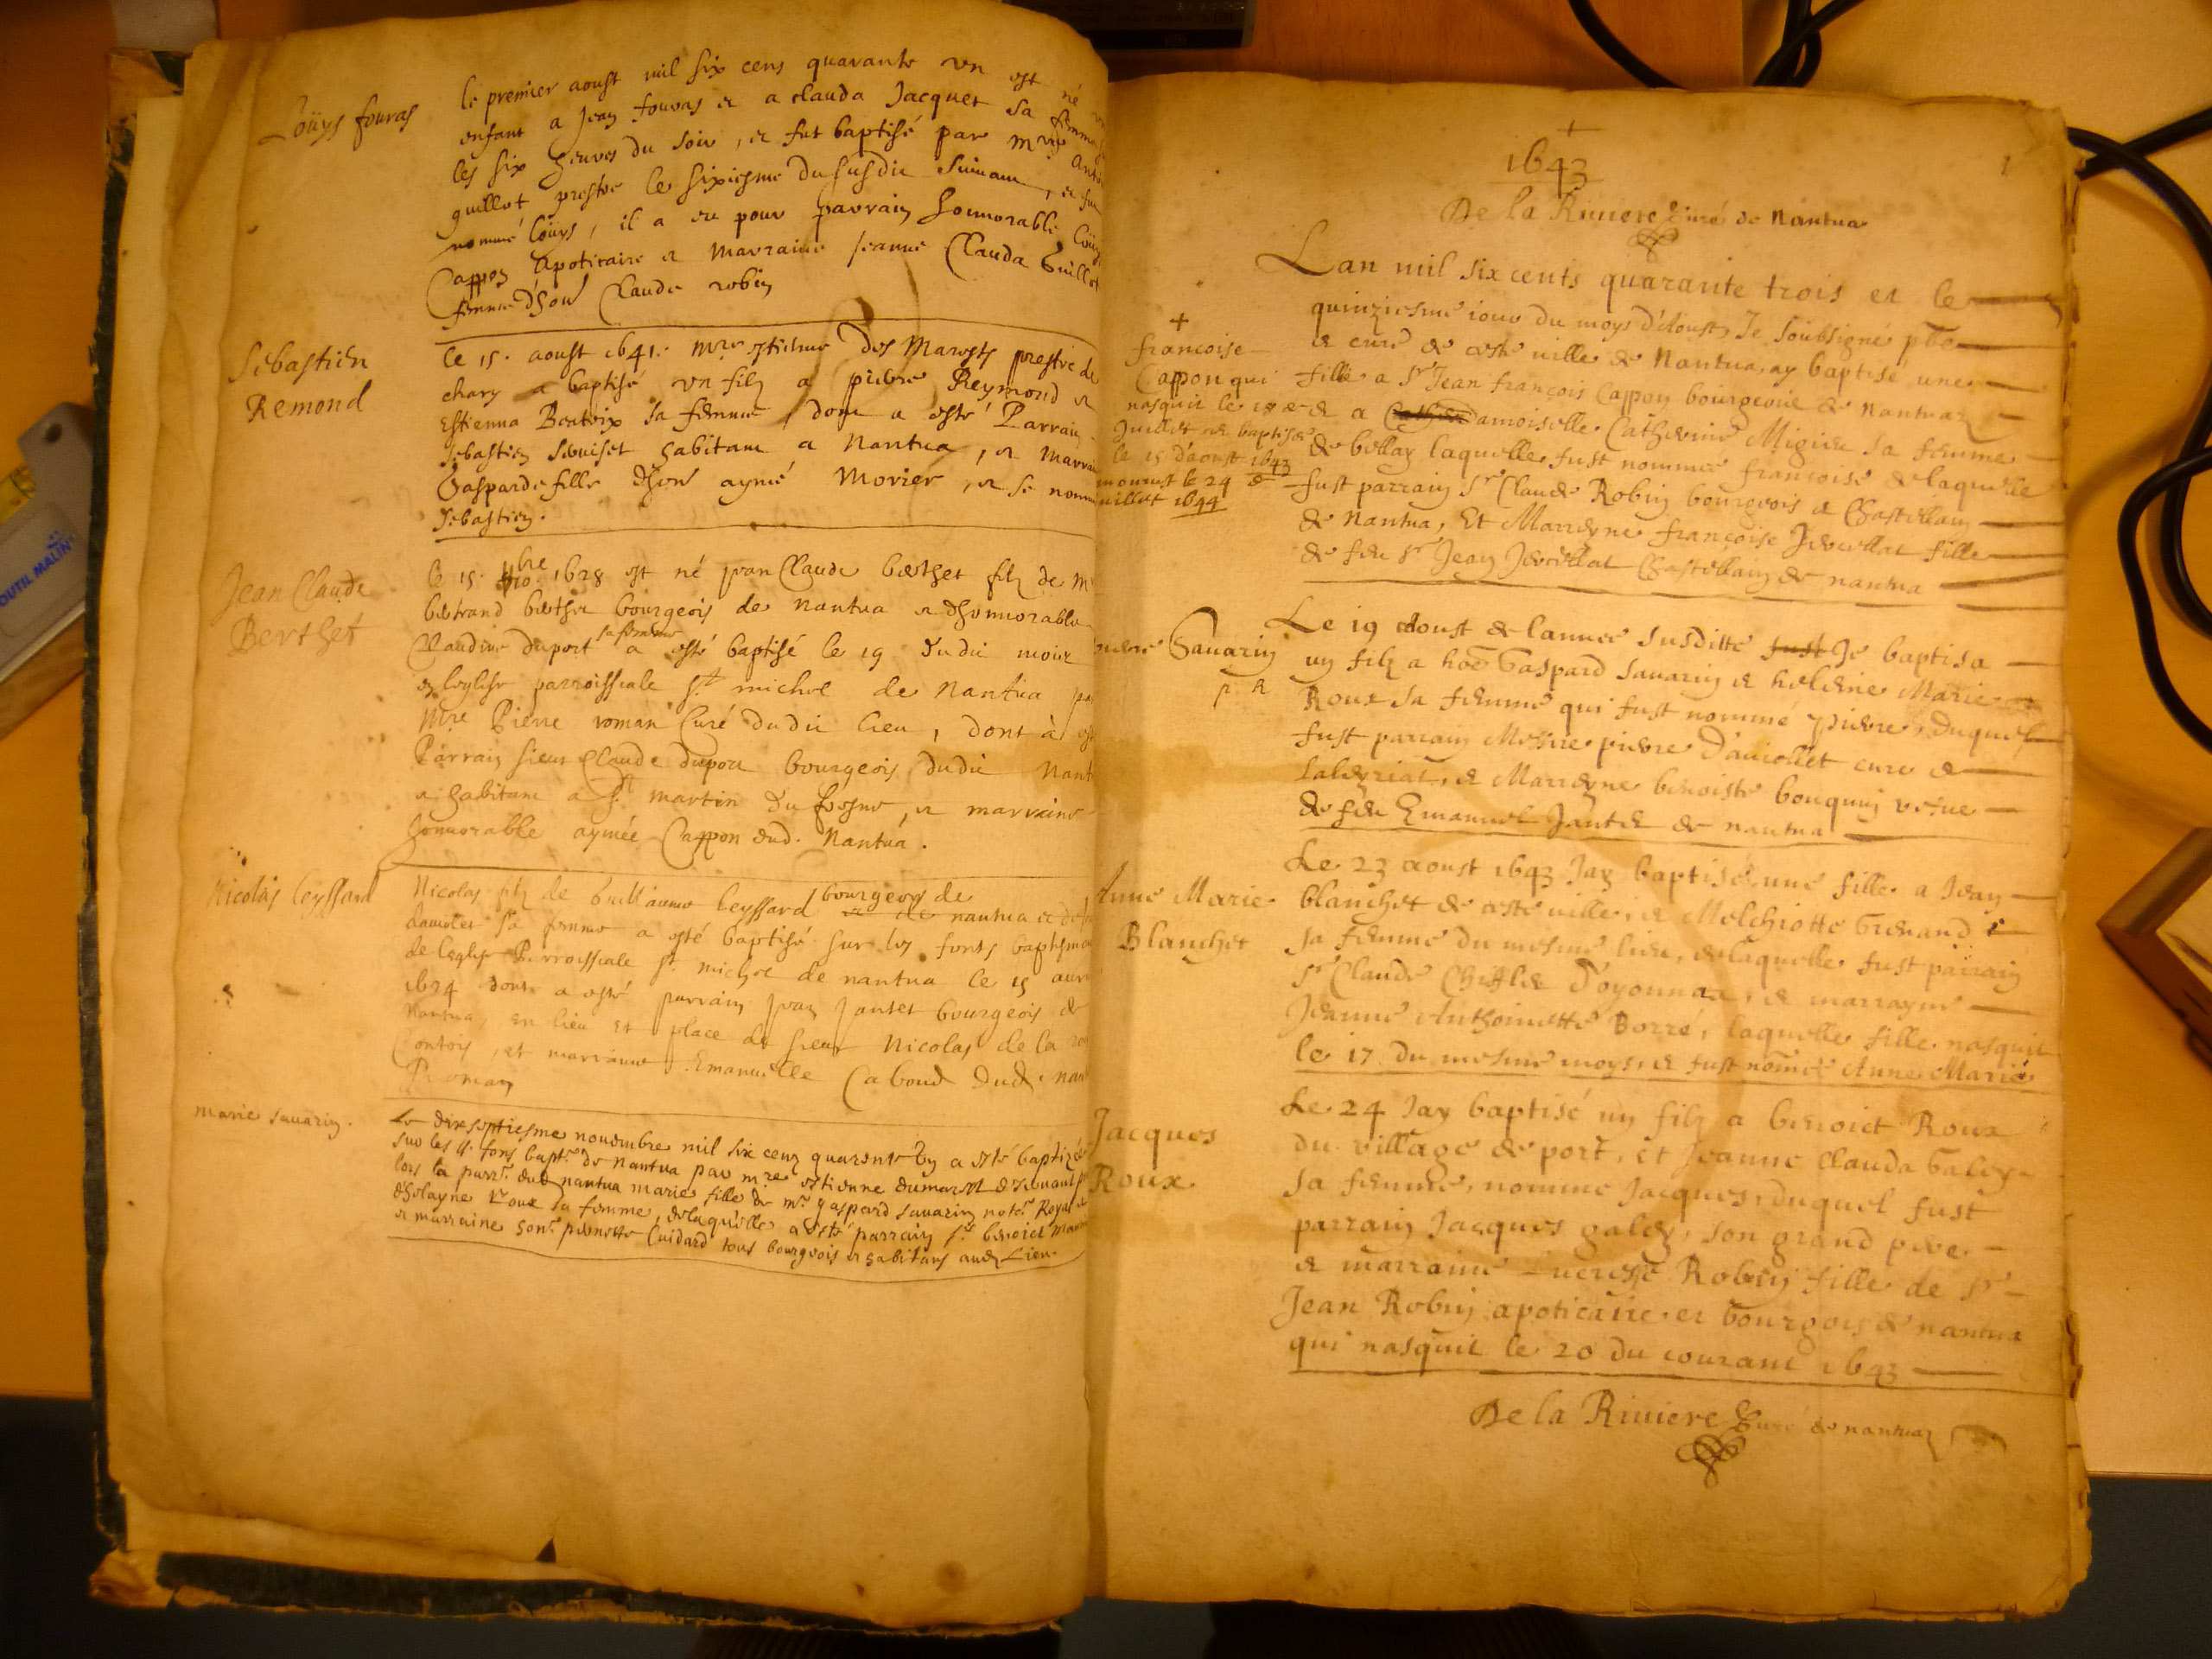 Loüys fouras
le premier aoust mil six cens quarante vn est né
enfant a Jean fouras et a clauda Jacquet sa femme
les six heures du soir, et fut baptisé par mre
guillot prestre le sixiesme du susdit suiuant, et fut
nommé loüys, il a eu pour parrain honnorable
Cappon Apoticaire et marraine Jeanne Clauda Guillot
femme d'hon Claude robin
Sebastien
Remond
Le 15. aoust 1641. mre estienne Des Marests prestre de
chary a baptisé vn filz a pierre Reymond et
Estienna Beatrix sa femme, dont a esté Parrain
sebastien habitant a Nantua, et
Gasparde fille d'hon aymé Morier, et se nomme
Sebastien.
Jean Claude
Berthet
le 15. 1628 est né Jean Claude berthet filz de
bertrand berthet bourgeois de nantua et d'honnorable
Claudine duport sa femme a esté baptisé le 19 dudit mois
en leglise parroissiale St michel de Nantua
Mre Pierre roman Curé dudit lieu, dont à
Parrain sieur Claude duport bourgeois dudit
et habitant a St martin du fresne, et marraine
honnorable aymée Cappon dud. Nantua.
Nicolas leyssard
Nicolas filz de Guillaume leyssard bourgeois de nantua et
sa femme a esté baptisé sur les fonts
de leglise Parroissiale St michel de nantua le 15
1624 dont a esté parrain Jean Jantet bourgeois de
Nantua, en lieu et place de sieur Nicolas de la
et marraine Emanuelle Caboud dud.
Roman
marie sauarin.
Le dixseptiesme nouembre mil six cens quarente vn a esté baptizée
sur les ss. fons bapt. de Nantua par mre estienne dumarest
lors la parr. dud nantua marie fille de mr gaspard sauarin notre Royal
d'holayne Roux sa femme, de laquelle a esté parrain sr benoict
et marraine hon. pernette Cuidard tous bourgeois et habitans aud Lieu.
OUTIL MALIN
+
1643
1
De la Riuiere Curé de Nantua
Lan mil six cents quarante trois et le
quinziesme iour du moys d'Aoust, Je soubsigné pbre
et curé de ceste uille de Nantua, ay baptisé une
fille a Sr Jean françois Cappon bourgeois de Nantua
et a damoiselle Catherine Migieu sa femme
de bellay laquelle fust nommée françoise de laquelle
fust parrain Sr Claude Robin bourgeois et Chastellain
de Nantua, Et Marreyne françoise Jeurillat fille
de feu Sr Jean Jeurillat Chastellain de nantua
+
francoise
Cappon qui
nasquit le 18 de
Juillet et baptisée
le 15 d'aoust 1643
mourust le 24 de
iuillet 1644
pierre Sauarin
Le 19 Aoust de lannee susditte fust Je baptisa
un filz a hoe Gaspard Sauarin et heleine Marie
Roux sa femme qui fust nommé Pierre, duquel
fust parrain Messire pierre D'auiollet cure de
Laleyriat, et Marreyne benoiste bouquin vefue
de feu Emanuel Jantet de nantua
Anne Marie
Blanchet
Le 23 aoust 1643 Jay baptisé une fille a Jean
blanchet de ceste uille, et Melchiotte Guenand
sa femme du mesme lieu, de laquelle fust parrain
Sr Claude Chifflet D'oyonnax, et marrayne
Jeanne Anthoinette Borré, laquelle fille nasquit
le 17 du mesme moys, et fust nomée Anne Marie
Jacques
Roux
Le 24 Jay baptisé un filz a benoict Roux
du village de port, et Jeanne Clauda Galey
sa femme, nommé Jacques, duquel fust
parrain Jacques galey, son grand pere
et marraine Robin fille de Sr
Jean Robin apoticaire et bourgois de nantua
qui nasquit le 20 du courant 1643
De la Riuiere Curé de nantua